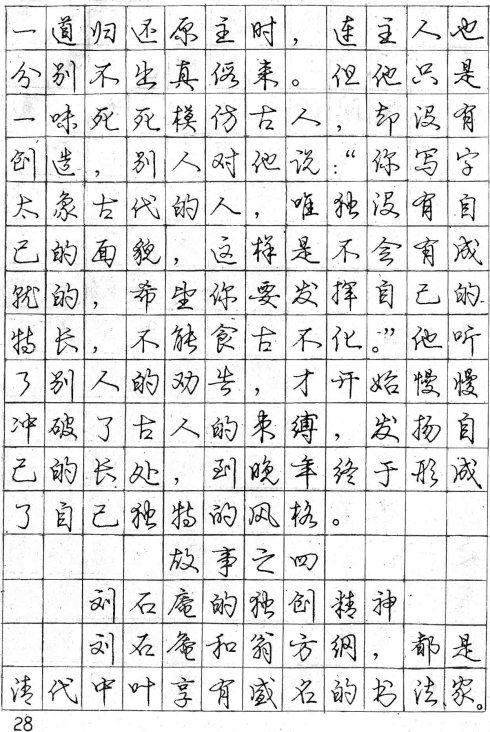 一道归还原主时，连主人也
分别不出真假来。但他只是
一味死死模仿古人，却没有
创造，别人对他说：“你写字
太象古代的人，唯独没有自
己的面貌，这样是不会有成
就的，希望你要发挥自己的
特长，不能食古不化。”他听
了别人的劝告，才开始慢慢
冲破了古人的束缚，发扬自
己的长处，到晚年终于形成
了自己独特的风格。
故事之四
刘石庵的独创精神
刘石庵和翁方纲，都是
清代中叶享有盛名的书法家。
28